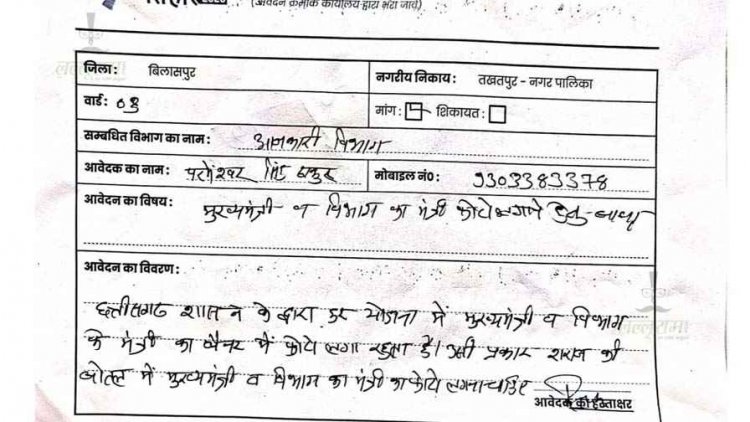 (आवेदन क्रमांक कार्यालय द्वारा भरा जावे)
जिला: बिलासपुर
नगरीय निकाय: तखतपुर - नगर पालिका
वार्ड: 08
मांग: शिकायत:
सम्बधित विभाग का नाम: आबकारी विभाग
आवेदक का नाम: परमेश्वर सिंह ठाकुर
मोबाइल नं०: 9303383378
आवेदन का विषय: मुख्यमंत्री व विभाग का मंत्री फोटो लगाने हेतु
आवेदन का विवरण:
छत्तीसगढ शासन के द्वारा हर योजना में मुख्यमंत्री व विभाग
के मंत्री का बैनर में फोटो लगा रहता है। उसी प्रकार शराब की
बोतल में मुख्यमंत्री व विभाग का मंत्री का फोटो लगना चाहिए
आवेदक के हस्ताक्षर
लल्लूराम